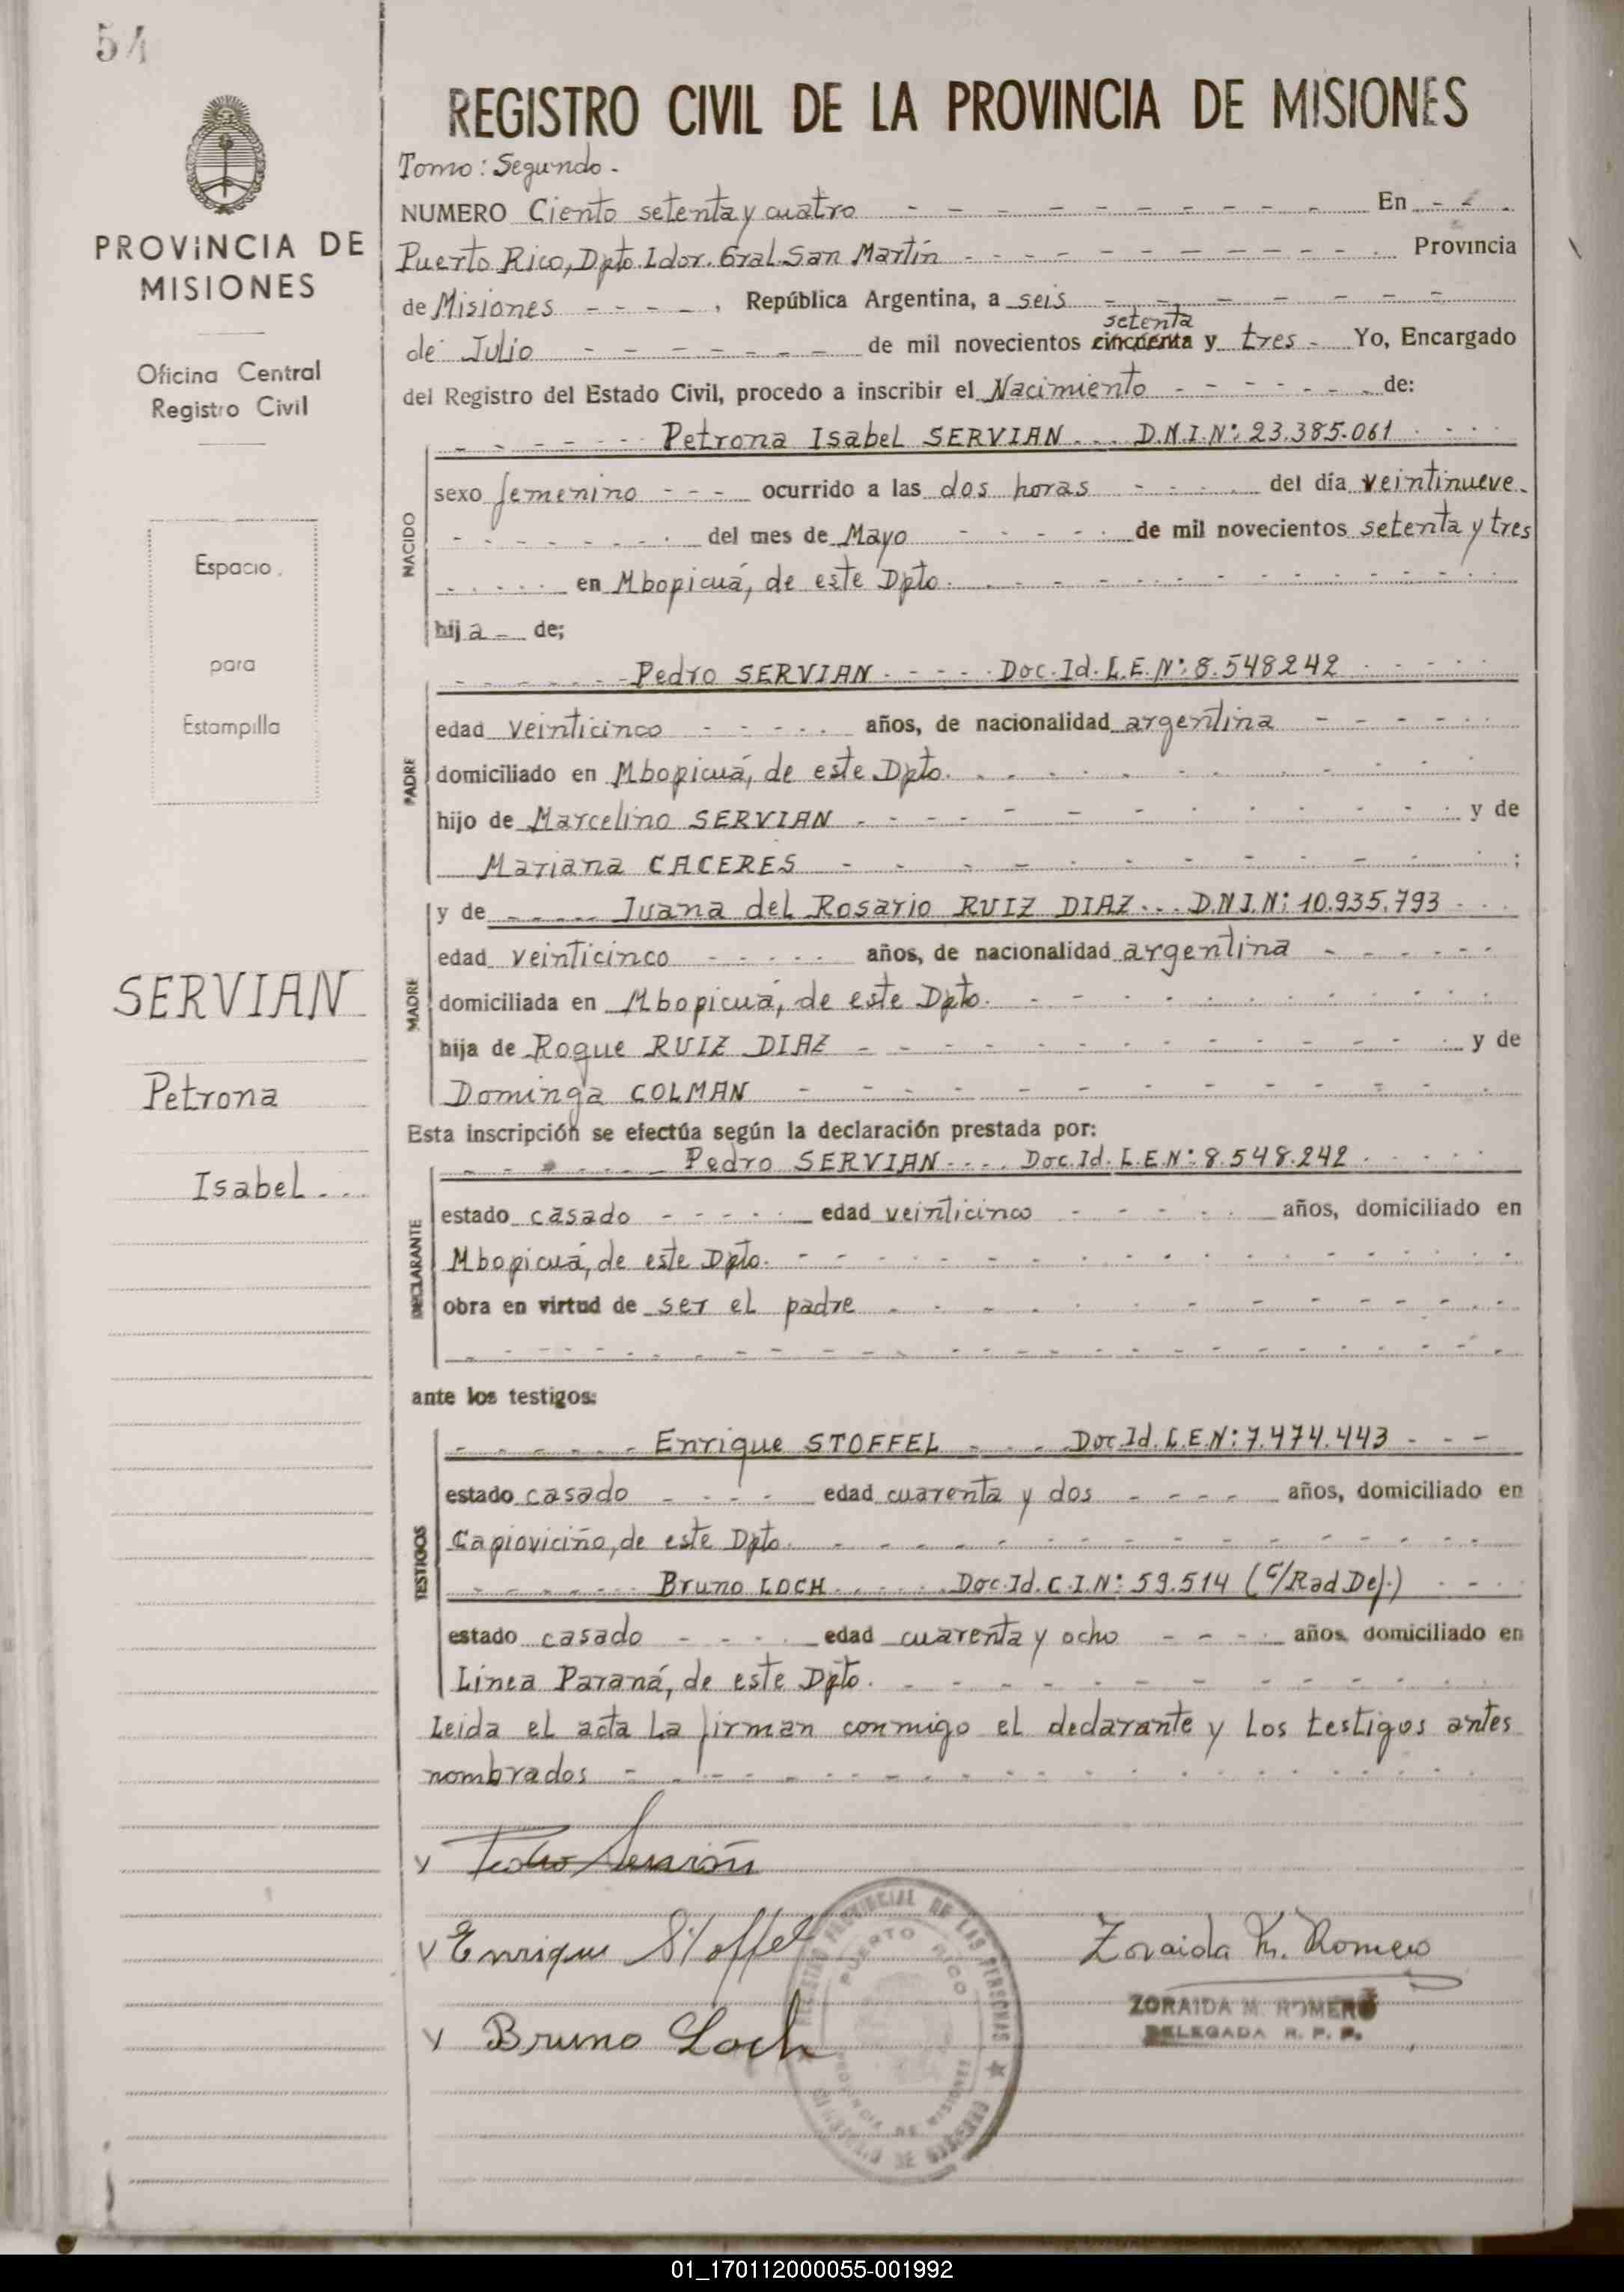 54
PROVINCIA DE
MISIONES
Oficina Central
Registro Civil
Espacio
para
Estampilla
SERVIAN
Petrona
Isabel
REGISTRO CIVIL DE LA PROVINCIA DE MISIONES
Tomo: Segundo -
NUMERO Ciento setenta y cuatro En
Puerto Rico, Dpto. Ldor. Gral. San Martín Provincia
de Misiones , República Argentina, a seis
setenta
de Julio de mil novecientos cincuenta y tres Yo, Encargado
del Registro del Estado Civil, procedo a inscribir el Nacimiento de:
Petrona Isabel SERVIAN D.N.I.Nº: 23.385.061
NACIDO
sexo femenino ocurrido a las dos horas del día veintinueve
del mes de Mayo de mil novecientos setenta y tres
en Mbopicuá, de este Dpto.
hija de;
Pedro SERVIAN Doc. Id. L.E. Nº: 8.548242
PADRE
edad veinticinco años, de nacionalidad argentina
domiciliado en Mbopicuá, de este Dpto.
hijo de Marcelino SERVIAN y de
Mariana CACERES ;
y de Juana del Rosario RUIZ DIAZ D.N.I.Nº: 10.935.793
MADRE
edad veinticinco años, de nacionalidad argentina
domiciliada en Mbopicuá, de este Dpto.
hija de Roque RUIZ DIAZ y de
Dominga COLMAN
Esta inscripción se efectúa según la declaración prestada por:
Pedro SERVIAN Doc. Id. L.E.Nº: 8.548.242
DECLARANTE
estado casado edad veinticinco años, domiciliado en
Mbopicuá, de este Dpto.
obra en virtud de ser el padre
ante los testigos:
Enrique STOFFEL Doc Id. L.E.Nº: 7.474.443
TESTIGOS
estado casado edad cuarenta y dos años, domiciliado en
Capioviciño, de este Dpto.
Bruno LOCH Doc. Id. C.I.Nº: 59.514 (C/Rad Def.)
estado casado edad cuarenta y ocho años, domiciliado en
Línea Paraná, de este Dpto.
Leida el acta la firman conmigo el declarante y los testigos antes
nombrados
Pedro Servián
Enrique Stoffel
Zoraida M. Romero
ZORAIDA M. ROMERO
DELEGADA R. P. P.
Bruno Loch
REGISTRO PROVINCIAL DE LAS PERSONAS
PUERTO RICO
PROVINCIA DE MISIONES
MINISTERIO DE GOBIERNO
01_170112000055-001992